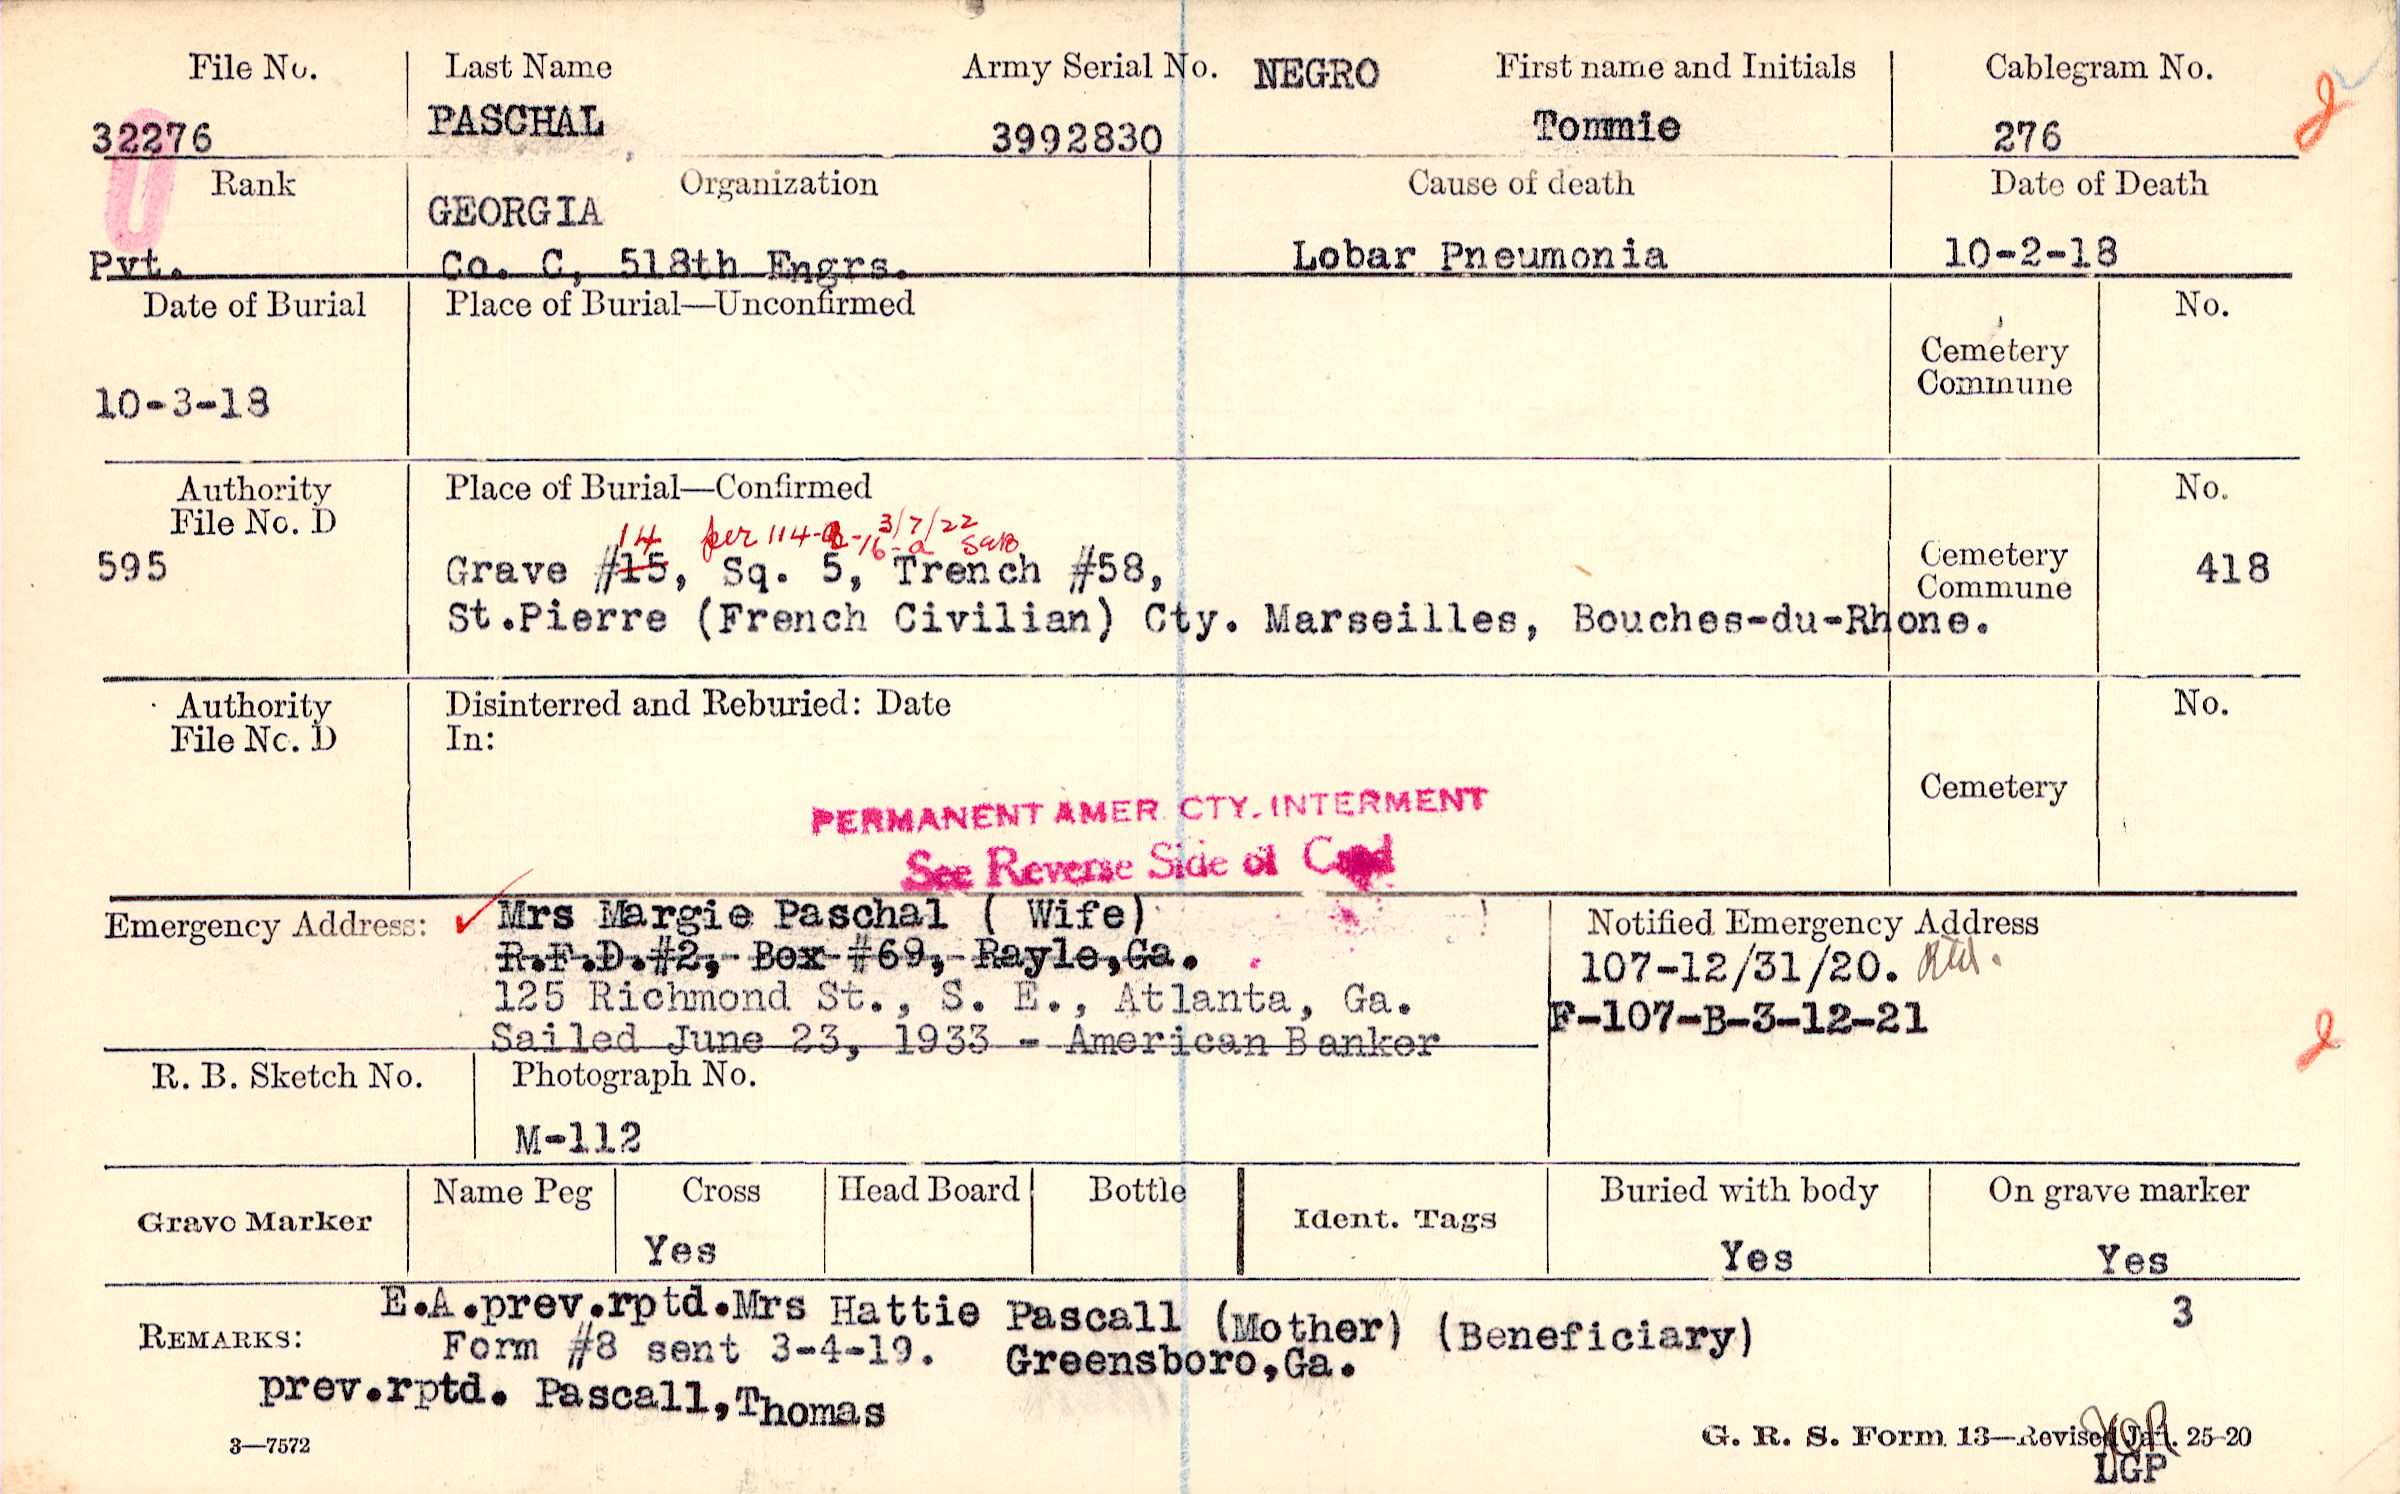 File No. Last Name Army Serial No. NEGRO First name and Initials Cablegram No.
32276 PASCHAL 3992830 Tommie 276
Rank Organization Cause of death Date of Death
GEORGIA
Pvt. Co. C, 518th Engrs. Lobar Pneumonia 10-2-18
Date of Burial Place of Burial—Unconfirmed No.
Cemetery
Commune
10-3-18
Authority Place of Burial—Confirmed No.
File No. D
14 per 114- -16-a 3/7/22
595 Grave #15, Sq. 5, Trench #58, Cemetery 418
Commune
St.Pierre (French Civilian) Cty. Marseilles, Bouches-du-Rhone.
Authority Disinterred and Reburied: Date No.
File No. D In:
Cemetery
PERMANENT AMER. CTY. INTERMENT
See Reverse Side of Card
Emergency Address: Mrs Margie Paschal ( Wife) Notified Emergency Address
R.F.D.#2, Box #69, Rayle,Ga. 107-12/31/20.
125 Richmond St., S. E., Atlanta, Ga.
F-107-B-3-12-21
Sailed June 23, 1933 - American Banker
R. B. Sketch No. Photograph No.
M-112
Grave Marker Name Peg Cross Head Board Bottle Ident. Tags Buried with body On grave marker
Yes Yes Yes
E.A.prev.rptd.Mrs Hattie Pascall (Mother) (Beneficiary) 3
REMARKS: Form #8 sent 3-4-19. Greensboro,Ga.
prev.rptd. Pascall,Thomas
3—7572 G. R. S. Form 13—Revised Jan. 25-20
LGP